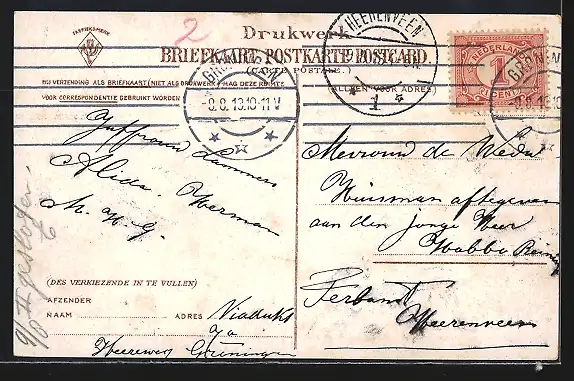 FABRIEKSMERK
2
Drukwerk
BRIEFKAART. POSTKARTE. POSTCARD.
(CARTE POSTALE.)
BIJ VERZENDING ALS BRIEFKAART (NIET ALS DRUKWERK) MAG DEZE RUIMTE
VOOR CORRESPONDENTIE GEBRUIKT WORDEN
(ALLEEN VOOR ADRES)
HEERENVEEN
1
NEDERLAND
1
-8.8.13.10-11V
Juffrouw Lammers
Alida. Herman
M. v. G.
Mevrouw de Wedu
Huisman aftegeven
aan den jonge Heer
Wobbe
Terband
Heerenveen
(DES VERKIEZENDE IN TE VULLEN)
AFZENDER
NAAM ADRES Viaduckt
Heereweg Groningen